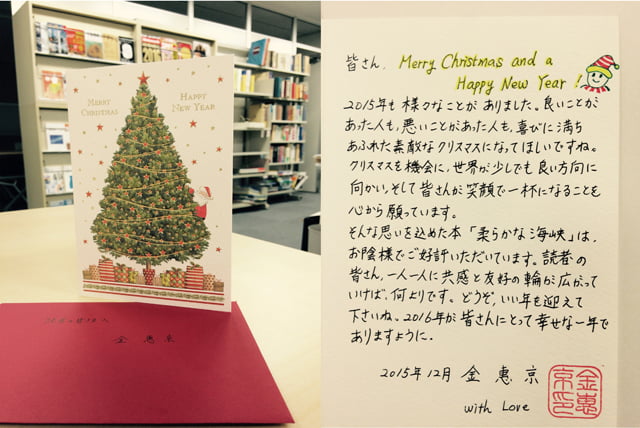 MERRY
CHRISTMAS
HAPPY
NEW YEAR
金 惠 京
皆さん, Merry Christmas and a
Happy New Year !
2015年も様々なことがありました。良いことが
あった人も、悪いことがあった人も、喜びに満ち
あふれた素敵なクリスマスになってほしいですね。
クリスマスを機会に、世界が少しでも良い方向に
向かい、そして皆さんが笑顔で一杯になることを
心から願っています。
そんな思いを込めた本「柔らかな海峡」は、
お陰様でご好評いただいています。読者の
皆さん、一人一人に共感と友好の輪が広がって
いけば、何よりです。どうぞ、いい年を迎えて
下さいね。2016年が皆さんにとって幸せな一年で
ありますように.
2015年12月 金 惠 京
with Love
金惠
京印